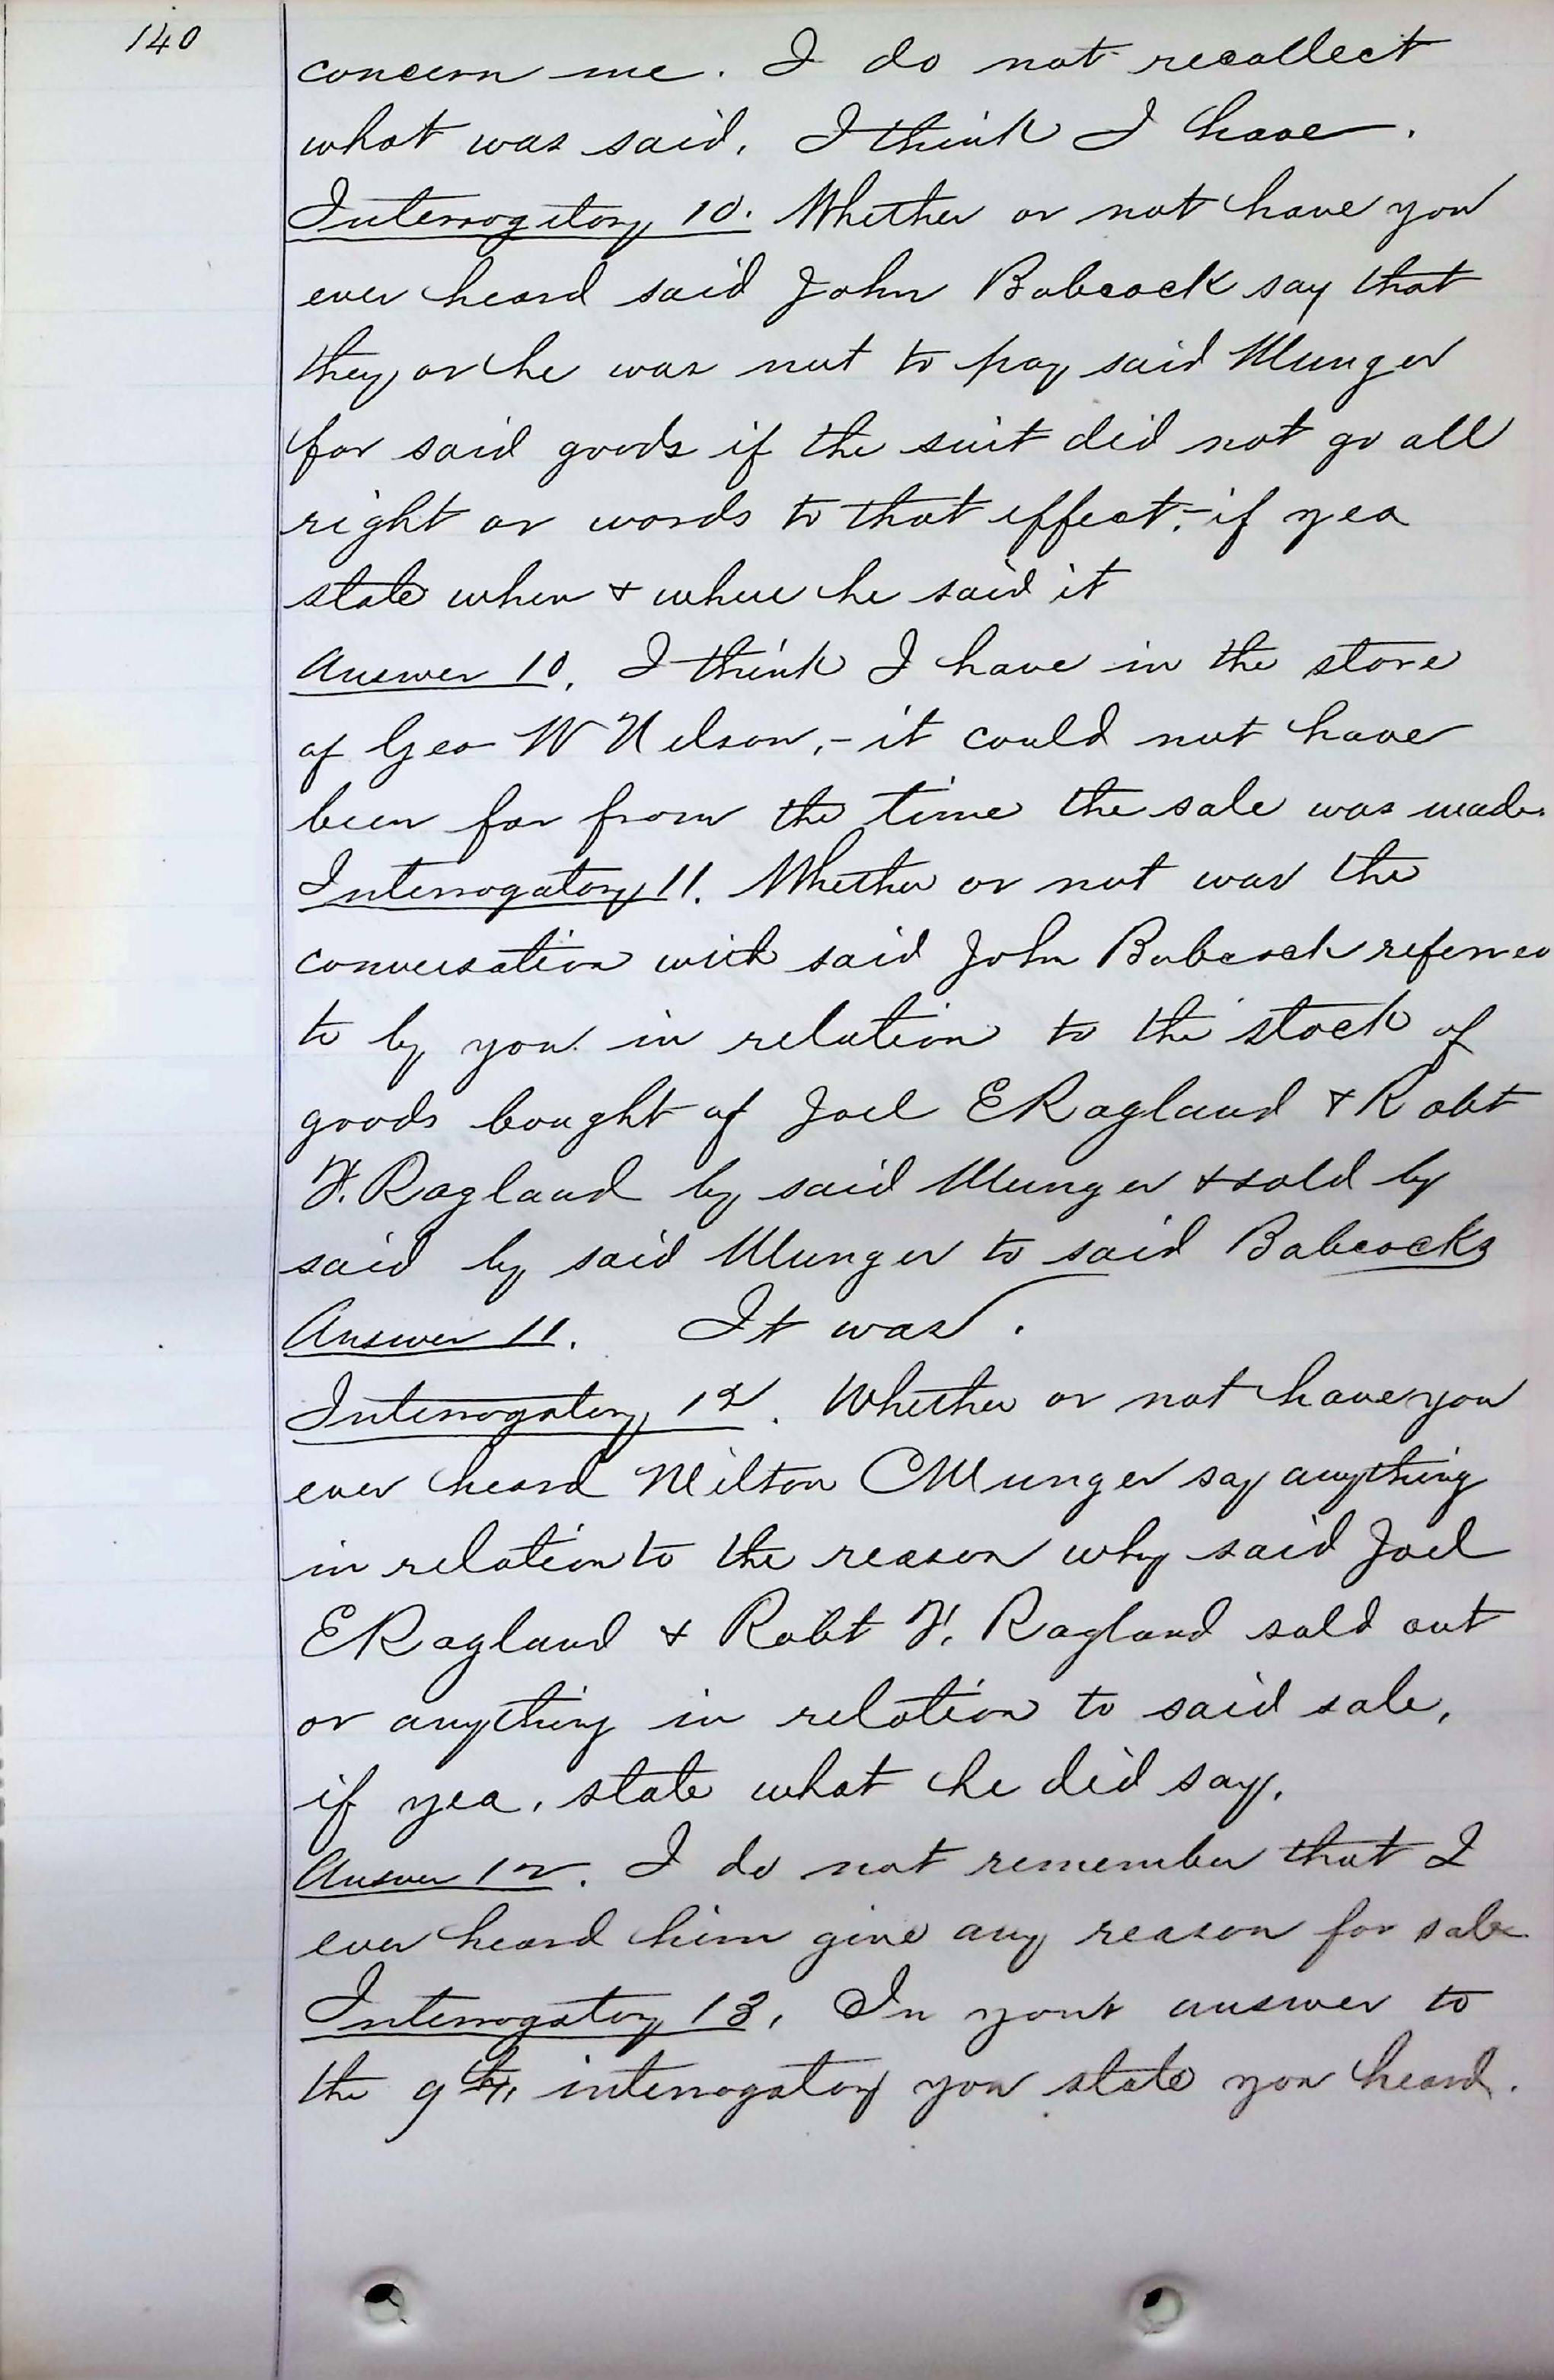 140
concern me. I do not recollect
what was said. I think I have.
Interrogitory 10. Whether or not have you
ever heard said John Babcock say that
they or he was not to pay said Munger
for said goods if the suit did not go all
right or words to that effect;- if yea
state when & where he said it
Answer 10. I think I have in the store
of Geo W Nelson,- it could not have
been far from the time the sale was made.
Interrogatory 11. Whether or not was the
conversation with said John Babcock referred
to by you in relation to the stock of
goods bought of Joel E Ragland & Robt
F. Ragland by said Munger & sold by
said by said Munger to said Babcocks
Answer 11. It was.
Interrogatory 12. Whether or not have you
ever heard Milton C Munger say anything
in relation to the reason why said Joel
E Ragland & Robt F. Ragland sold out
or anything in relation to said sale,
if yea, state what he did say.
Answer 12. I do not remember that I
ever heard him give any reason for sale
Interrogatory 13. In your answer to
the 9th, interrogatory you state you heard.